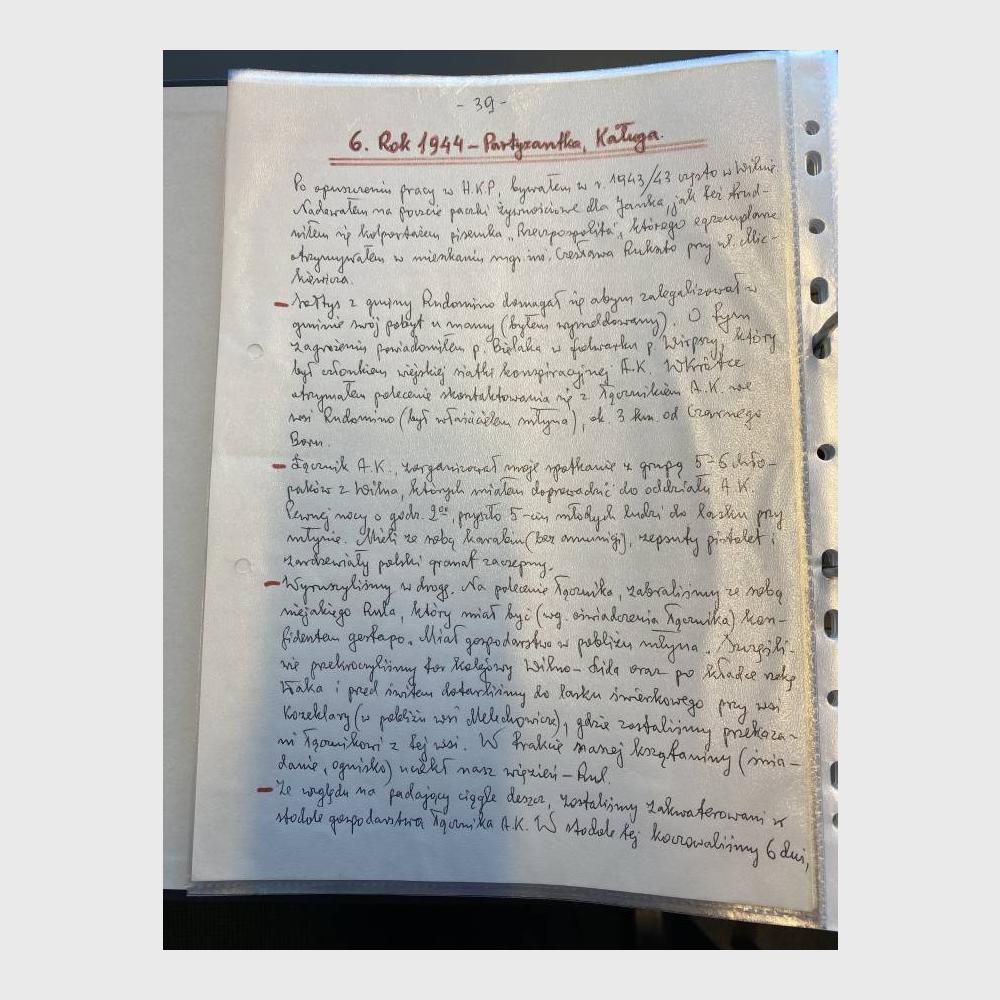 - 39 -
6. Rok 1944 – Partyzantka, Kaługa.
Po opuszczeniu pracy w H.K.P, bywałem w r. 1943/43 często w Wilnie.
Nadawałem na poczcie paczki żywnościowe dla Janka, jak też trud-
niłem się kolportażem pisemka „Rzeczpospolita", którego egzemplarze
otrzymywałem w mieszkaniu mgr. inż. Czesława Ruksto przy ul. Mic-
kiewicza.
– Sołtys z gminy Rudomino domagał się abym zalegalizował w
gminie swój pobyt u mamy (byłem wymeldowany). O tym
zagrożeniu powiadomiłem p. Bielaka w folwarku p. Wierpszy, który
był członkiem wiejskiej siatki konspiracyjnej A.K. Wkrótce
otrzymałem polecenie skontaktowania się z łącznikiem A.K. we
wsi Rudomino (był właścicielem młyna), ok. 3 km. od Czarnego
Boru.
– Łącznik A.K., zorganizował moje spotkanie z grupą 5-6 chło-
paków z Wilna, których miałem doprowadzić do oddziału A.K.
Pewnej nocy o godz. 2ej, przyszło 5-ciu młodych ludzi do lasku przy
młynie. Mieli ze sobą karabin (bez amunicji), zepsuty pistolet i
zardzewiały polski granat zaczepny.
– Wyruszyliśmy w drogę. Na polecenie łącznika, zabraliśmy ze sobą
niejakiego Rula, który miał być (wg. oświadczenia łącznika) kon-
fidentem gestapo. Miał gospodarstwo w pobliżu młyna. Szczęśli-
wie przekroczyliśmy tor kolejowy Wilno – Lida oraz po kładce rzekę
Waka i przed świtem dotarliśmy do lasku świerkowego przy wsi
Kozeklary (w pobliżu wsi Melechowicze), gdzie zostaliśmy przekaza-
ni łącznikowi z tej wsi. W trakcie naszej krzątaniny (śnia-
danie, ognisko) uciekł nasz więzień – Rul.
– Ze względu na padający ciągle deszcz, zostaliśmy zakwaterowani w
stodole gospodarstwa łącznika A.K. W stodole tej koczowaliśmy 6 dni,